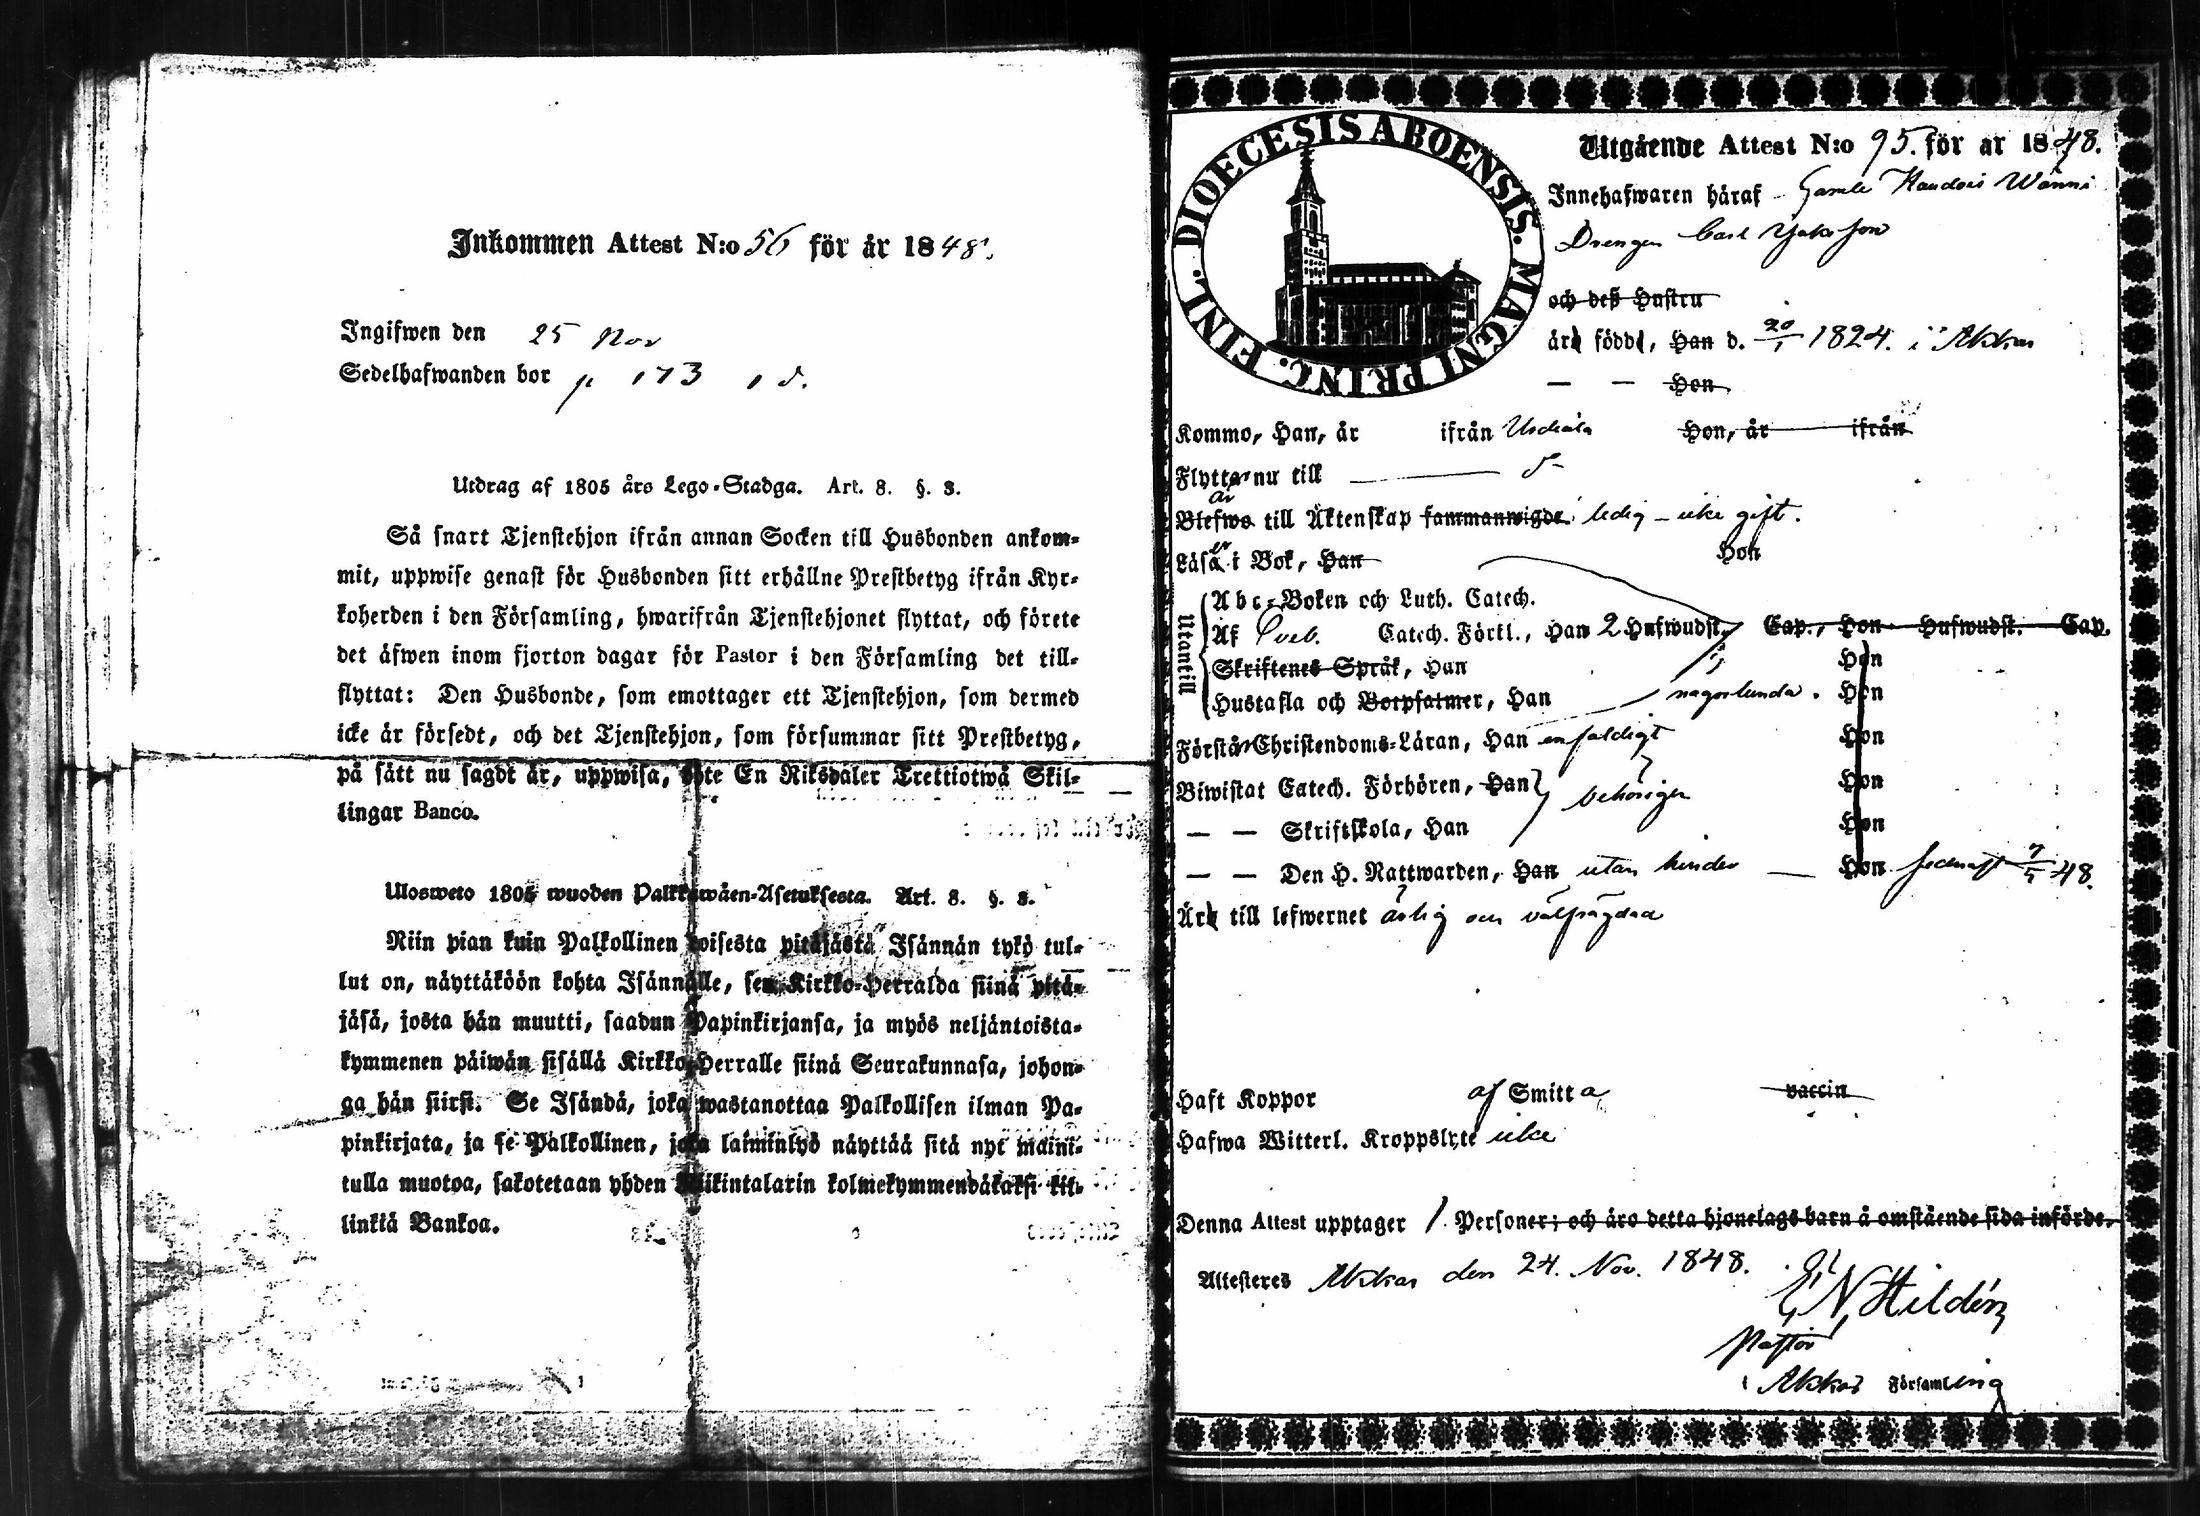 Inkommen Attest N:o 56 för år 1848.
Ingifwen den 25 Nov
Sedelhafwanden bor p 173
Utdrag af 1805 års Lego-Stadga. Art. 8. §. 3.
Så snart Tjenstehjon ifrån annan Socken till Husbonden ankom-
mit, uppwise genast för Husbonden sitt erhållne Prestbetyg ifrån Kyr-
koherden i den Församling, hwarifrån Tjenstehjonet flyttat, och förete
det äfwen inom fjorton dagar för Pastor i den Församling det till-
flyttat: Den Husbonde, som emottager ett Tjenstehjon, som dermed
icke är försedt, och det Tjenstehjon, som försummar sitt Prestbetyg,
på sätt nu sagdt är, uppwisa, böte En Riksdaler Trettiotwå Skil-
lingar Banco.
Ulosweto 1805 wuoden Palkkawäen-Asetuksesta. Art. 8. §. 3.
Niin pian kuin Palkollinen toisesta pitäjästä Isännän tykö tul-
lut on, näyttäköön kohta Isännälle, sen Kirkko-Herralda siinä pitä-
jäsä, josta hän muutti, saadun Papinkirjansa, ja myös neljäntoista-
kymmenen päiwän sisällä Kirkko-Herralle siinä Seurakunnasa, johon-
ga hän siirsi. Se Isändä, joka wastanottaa Palkollisen ilman Pa-
pinkirjata, ja se Palkollinen, joka laiminlyö näyttää sitä nyt maini-
tulla muotoa, sakotetaan yhden Riikintalarin kolmekymmendäkaksi kil-
linkiä Bankoa.
DIOECESIS ABOENSIS. MAGNI PRINC. FINL.
Utgående Attest N:o 95. för år 1848.
Innehafwaren häraf Gamle Wänni
Drengen Carl Jaksson
och deß Hustru
äro född, Han d. 20/1 1824. i Akkas
— — Hon
Kommo, Han, år ifrån Urdiala Hon, år ifrån
Flyttar nu till
är
Blefwo till Äktenskap sammanwigde ledig – icke gift.
Läsa i Bok, Han Hon
Utantill
Abc-Boken och Luth. Catech.
Af Sveb. Catech. Förkl., Han 2 Hufwudst. Cap., Hon Hufwudst. Cap.
Skriftenes Språk, Han Hon
Hustafla och Botpsalmer, Han någorlunda. Hon
Förstår Christendoms-Läran, Han enfaldigt Hon
Biwistat Catech. Förhören, Han behörigen Hon
— — Skriftskola, Han Hon
— — Den H. Nattwarden, Han utan hinder — Hon sednast 7/5 48.
Äro till lefwernet ärlig och välfrägdad
Haft Koppor af Smitta vaccin
Hafwa Witterl. Kroppslyte icke
Denna Attest upptager 1. Personer; och äro detta hjonelags barn å omstående sida införde.
Attesteres Akkas den 24. Nov. 1848.
E. N. Hildén
Pastor
i Akkas Församling